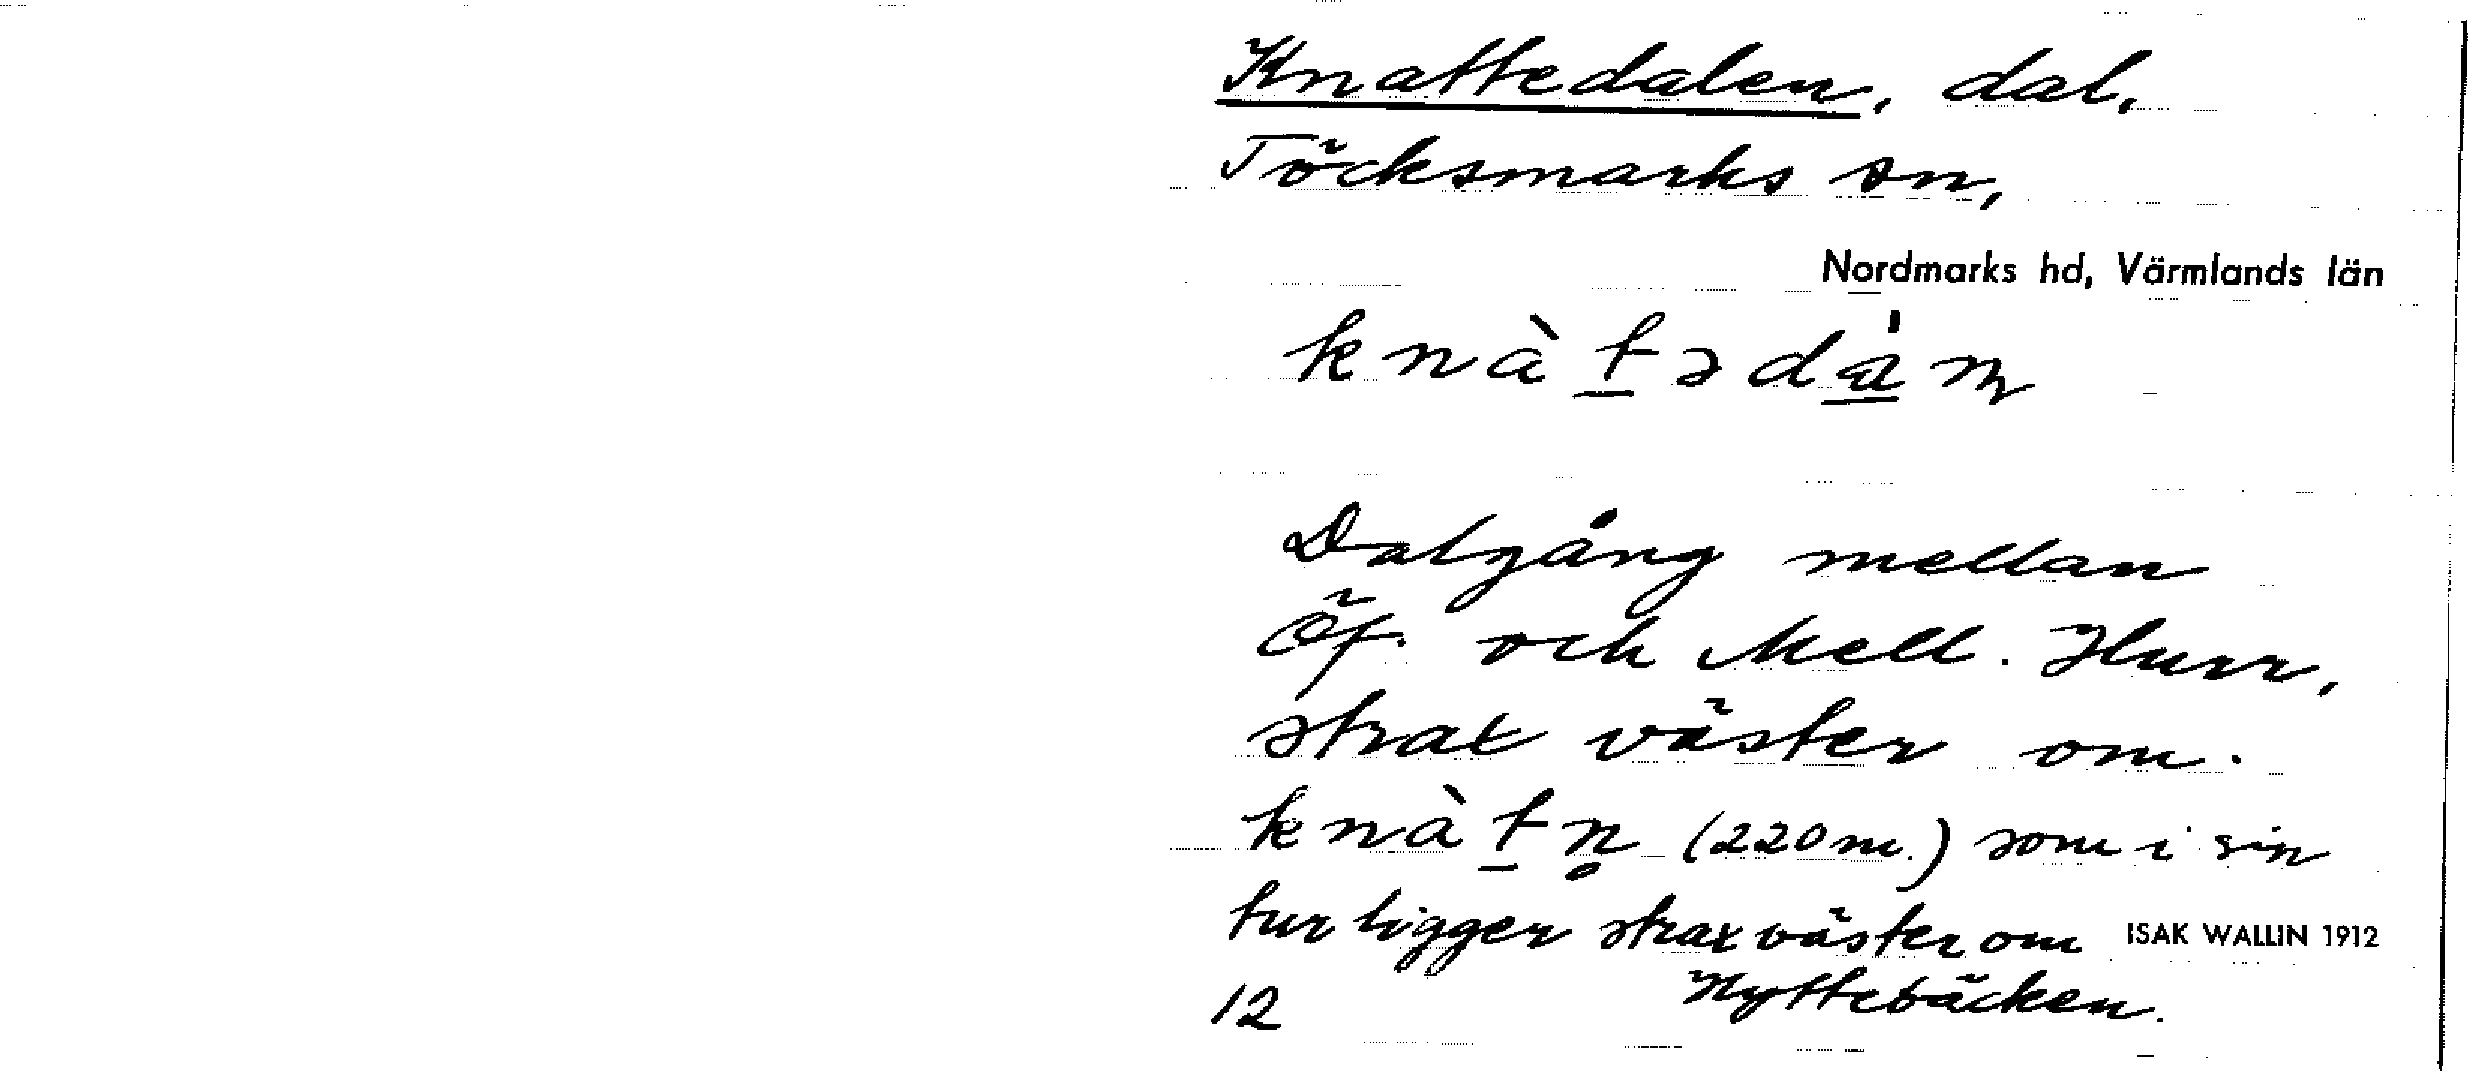 Knattedalen, dal,
Töcksmarks sn,
Nordmarks hd, Värmlands län
knàt̲əda̲̍n̥
Dalgång mellan
Öf. och Mell. Hurr,
strax väster om
knàt̲n̥ (220 m.) som i sin
tur ligger strax väster om
Nyttebäcken.
ISAK WALLIN 1912
12